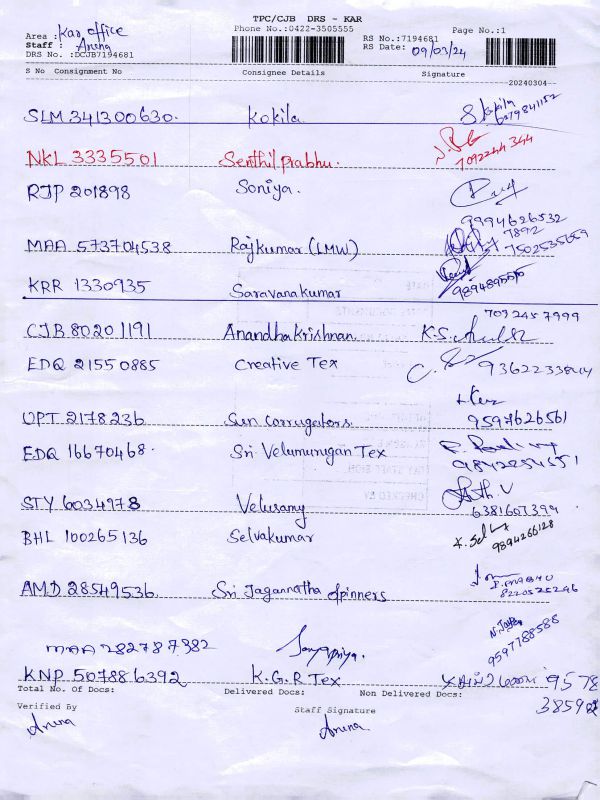 TPC/CJB DRS - KAR
Area : Kar office Phone No.:0422-3505555 RS No.:7194681 Page No.:1
Staff : Aruna RS Date: 09/03/24
DRS No. :DCJB7194681
S No Consignment No Consignee Details Signature
20240304
SLM 341300630. Kokila S. Kokila
NKL 3335501 Senthil prabhu. 7092244344
RJP 201898 Soniya.
9994626532
MAA 573704538 Rajkumar (LMW) 7892 7502535659
KRR 1330935 Saravanakumar
7092457999
CJB 80201191 Anandhakrishnan K.S.
EDQ 21550885 Creative Tex
UPT 2178236 Sun Corrugators 9597626561
EDQ 16670468. Sri Velumurugan Tex
STY 6034978 Velusamy 6381607399
BHL 100265136 Selvakumar 9894266128
AMD 28549536 Sri Jagannatha Spinners P. PRABHU 8220525296
MAA 282787382 9597788588
KNP 507886392 K.G.R Tex 9578
Total No. Of Docs: Delivered Docs: Non Delivered Docs:
38590
Verified By Staff Signature
Aruna Aruna